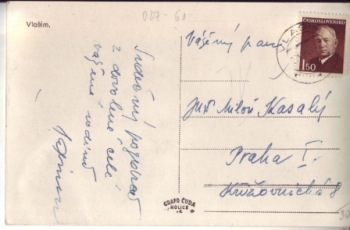 Vlašim.
027-61
Srdečný pozdrav
z dovolené celé
vážené rodině
Vážený pan
ČESKOSLOVENSKO
1.50
VLAŠ
JUDr Miloš Kasalý
Praha I.
Křižovnická 8
GRAFO ČUDA
HOLICE
30